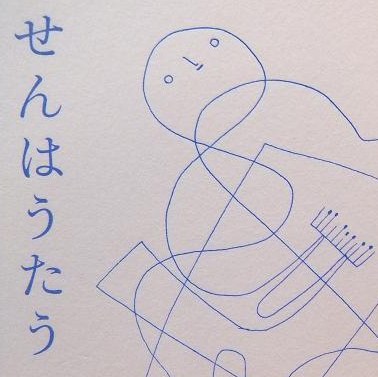 せんはうたう